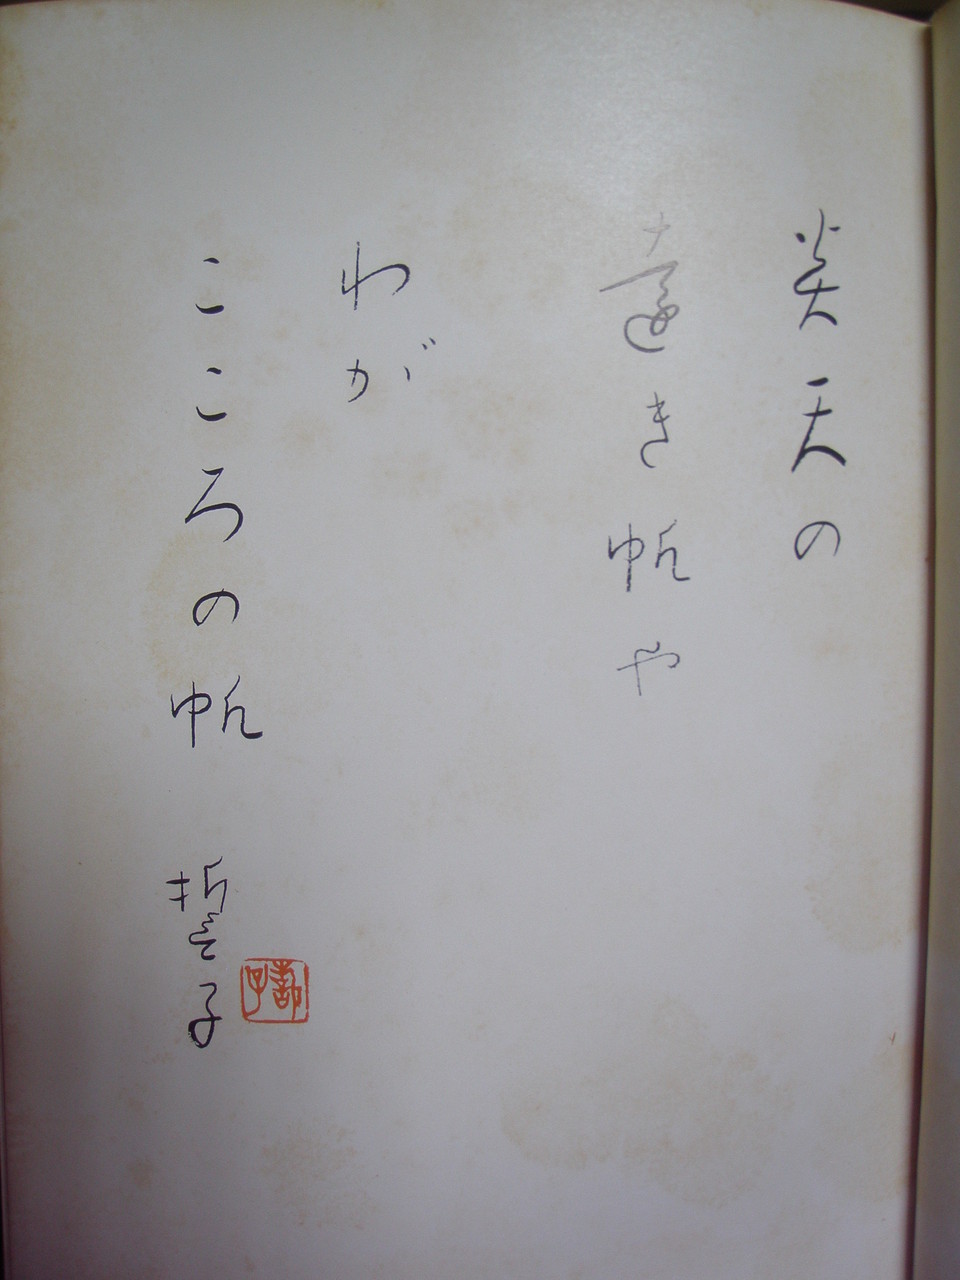 炎天の
遠き帆や
わが
こころの帆 誓子